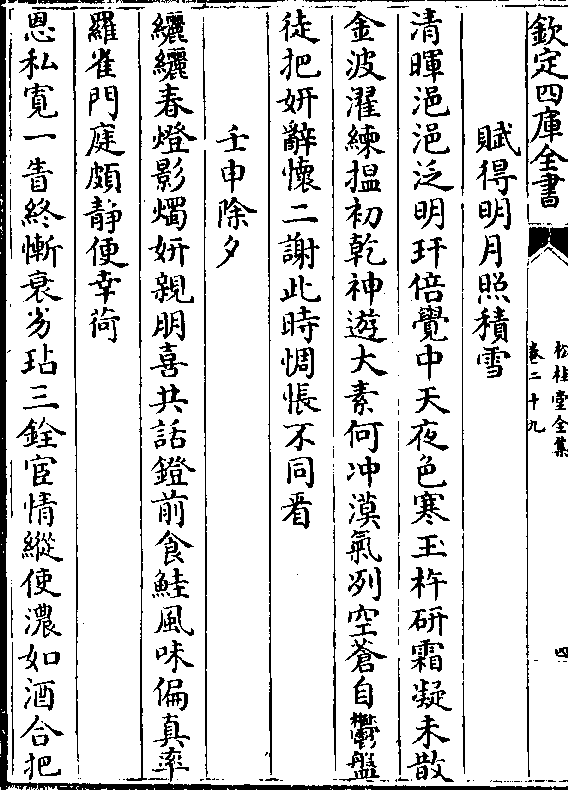 欽定四庫全書
松桂堂全集
卷二十九
四
賦得明月照積雪
清暉浥浥泛明玕倍覺中天夜色寒玉杵研霜凝未散
金波濯練揾初乾神遊大素何冲漠氣冽空蒼自鬱盤
徒把妍辭懷二謝此時惆悵不同看
壬申除夕
纚纚春燈影燭妍親朋喜共話鐙前食鮭風味偏真率
羅雀門庭頗静便幸荷
恩私寛一眚終慚衰劣玷三銓宦情縱使濃如酒合把